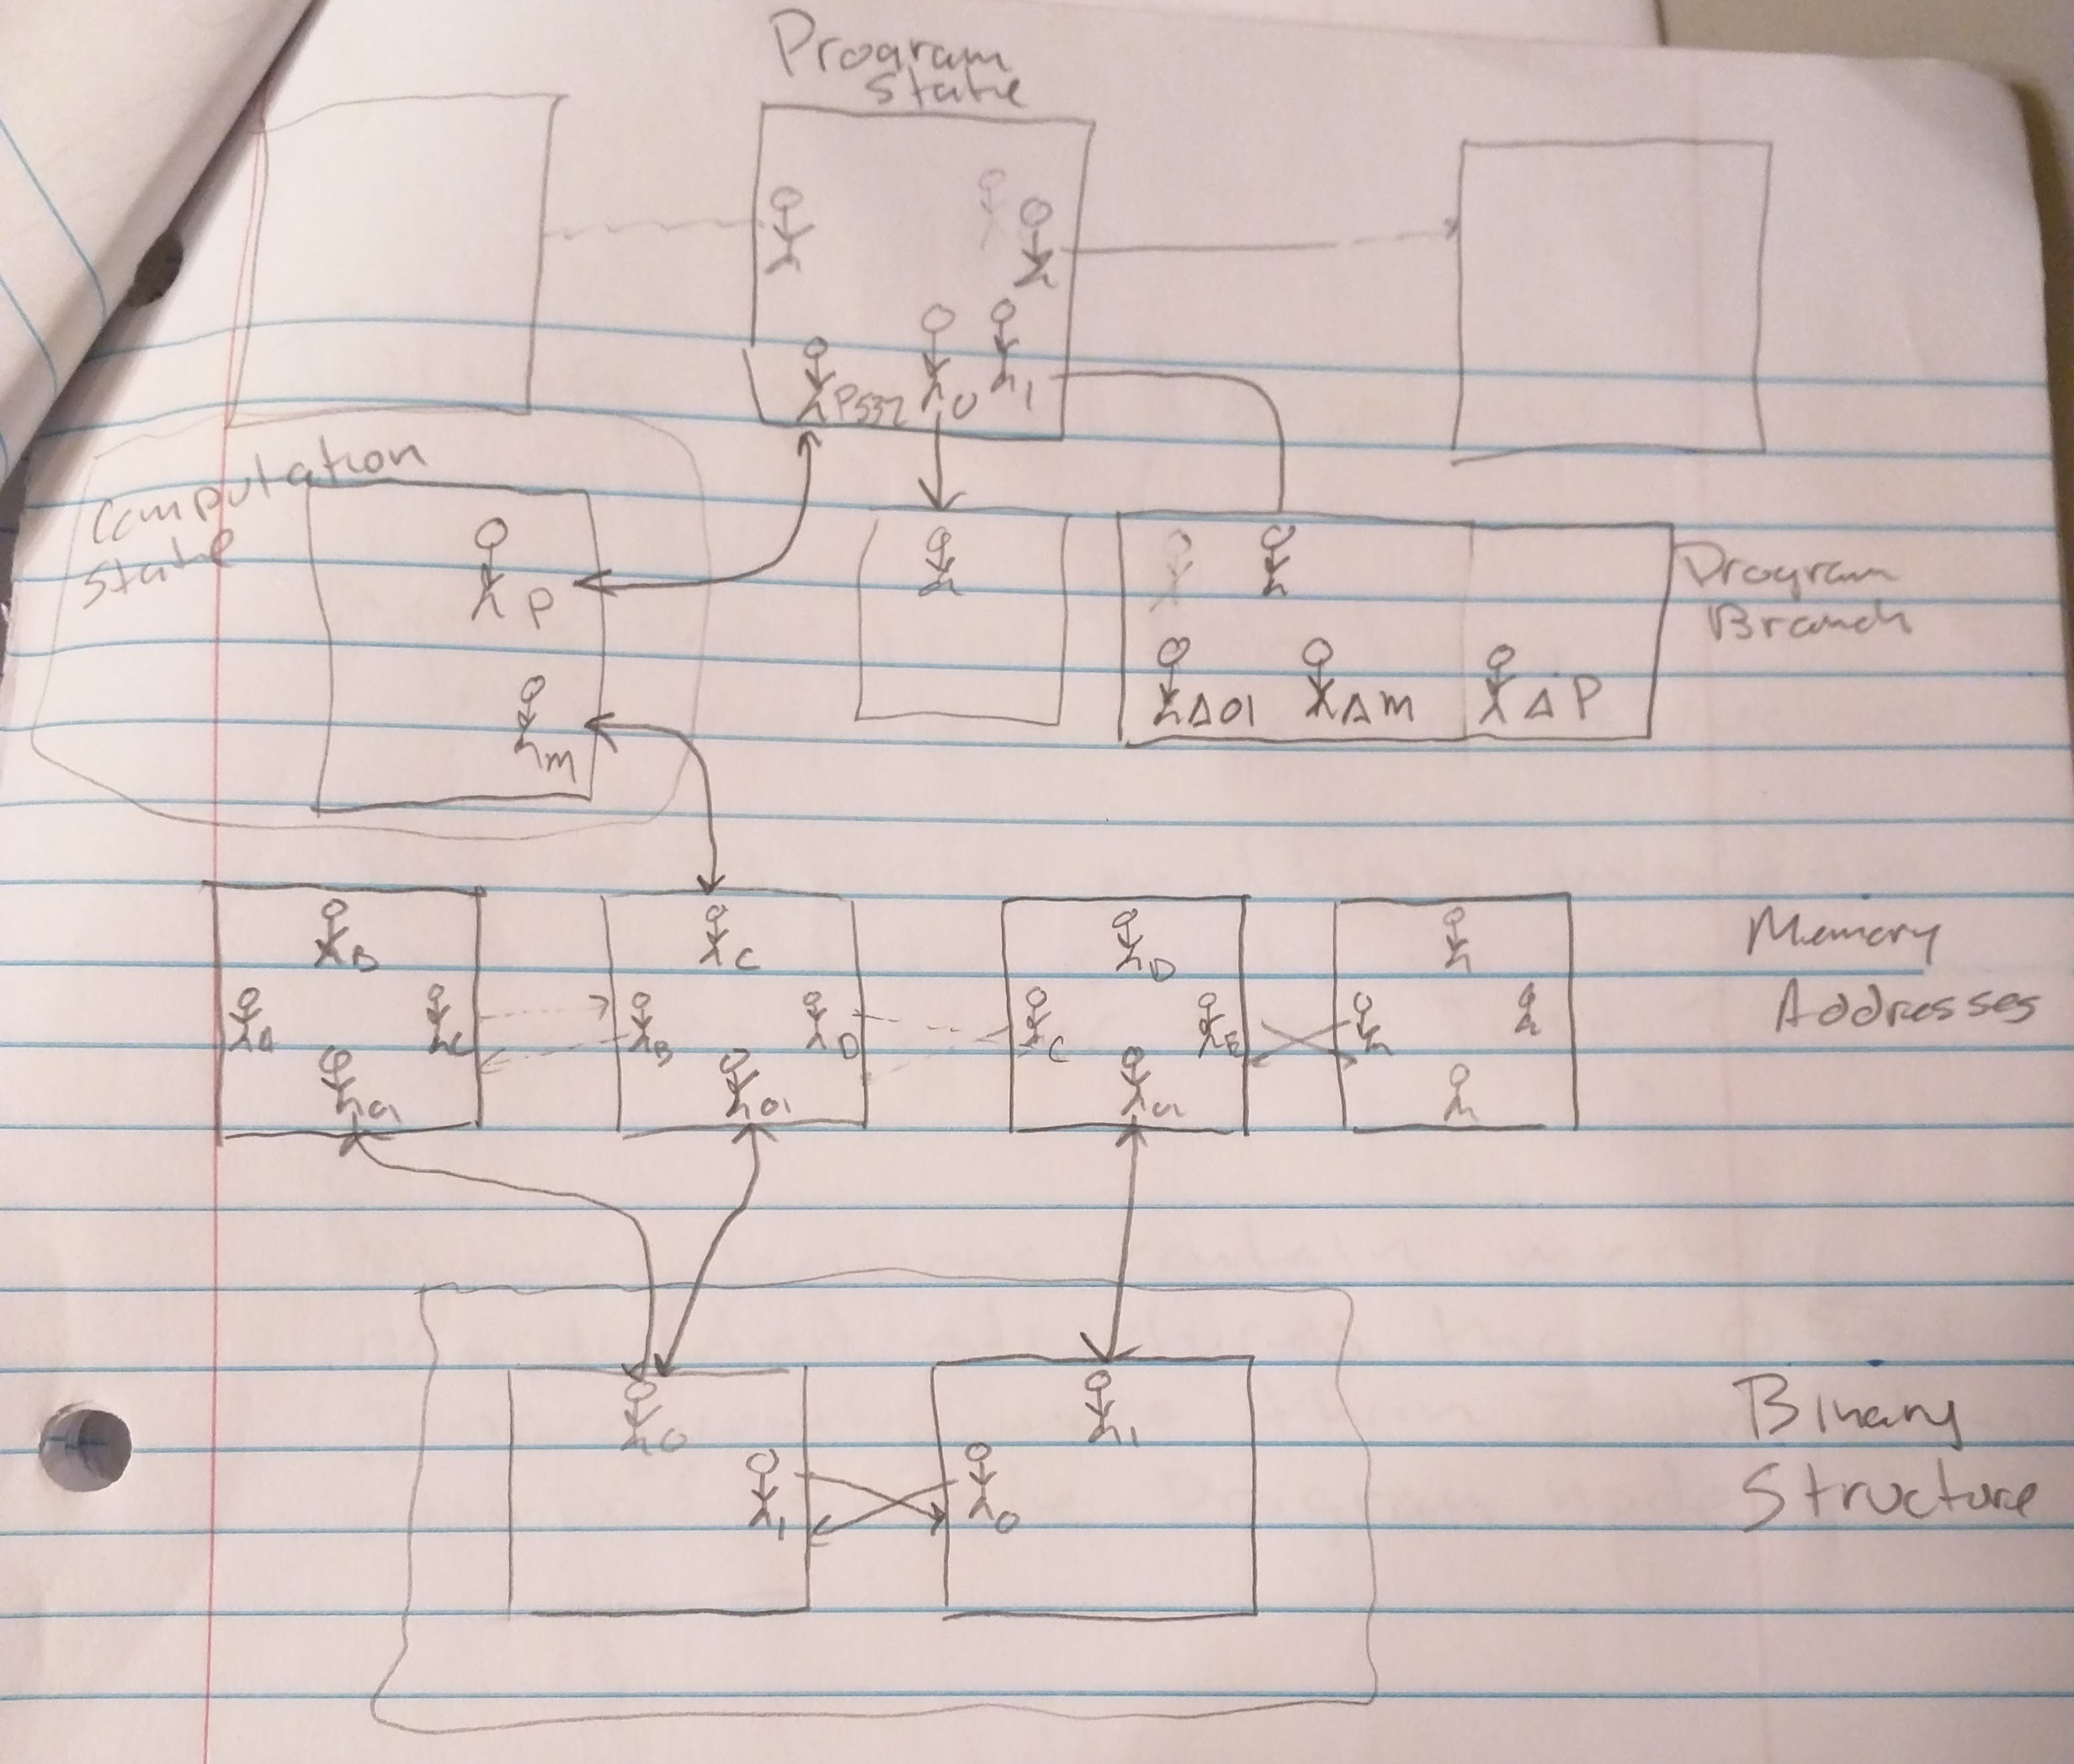 Program
State
P532 0 1
Computation
State
P
m
Program
Branch
Δ01 Δm ΔP
B C D
Memory
Addresses
A C B D C E
01 01 01
0 1
1 0
Binary
Structure